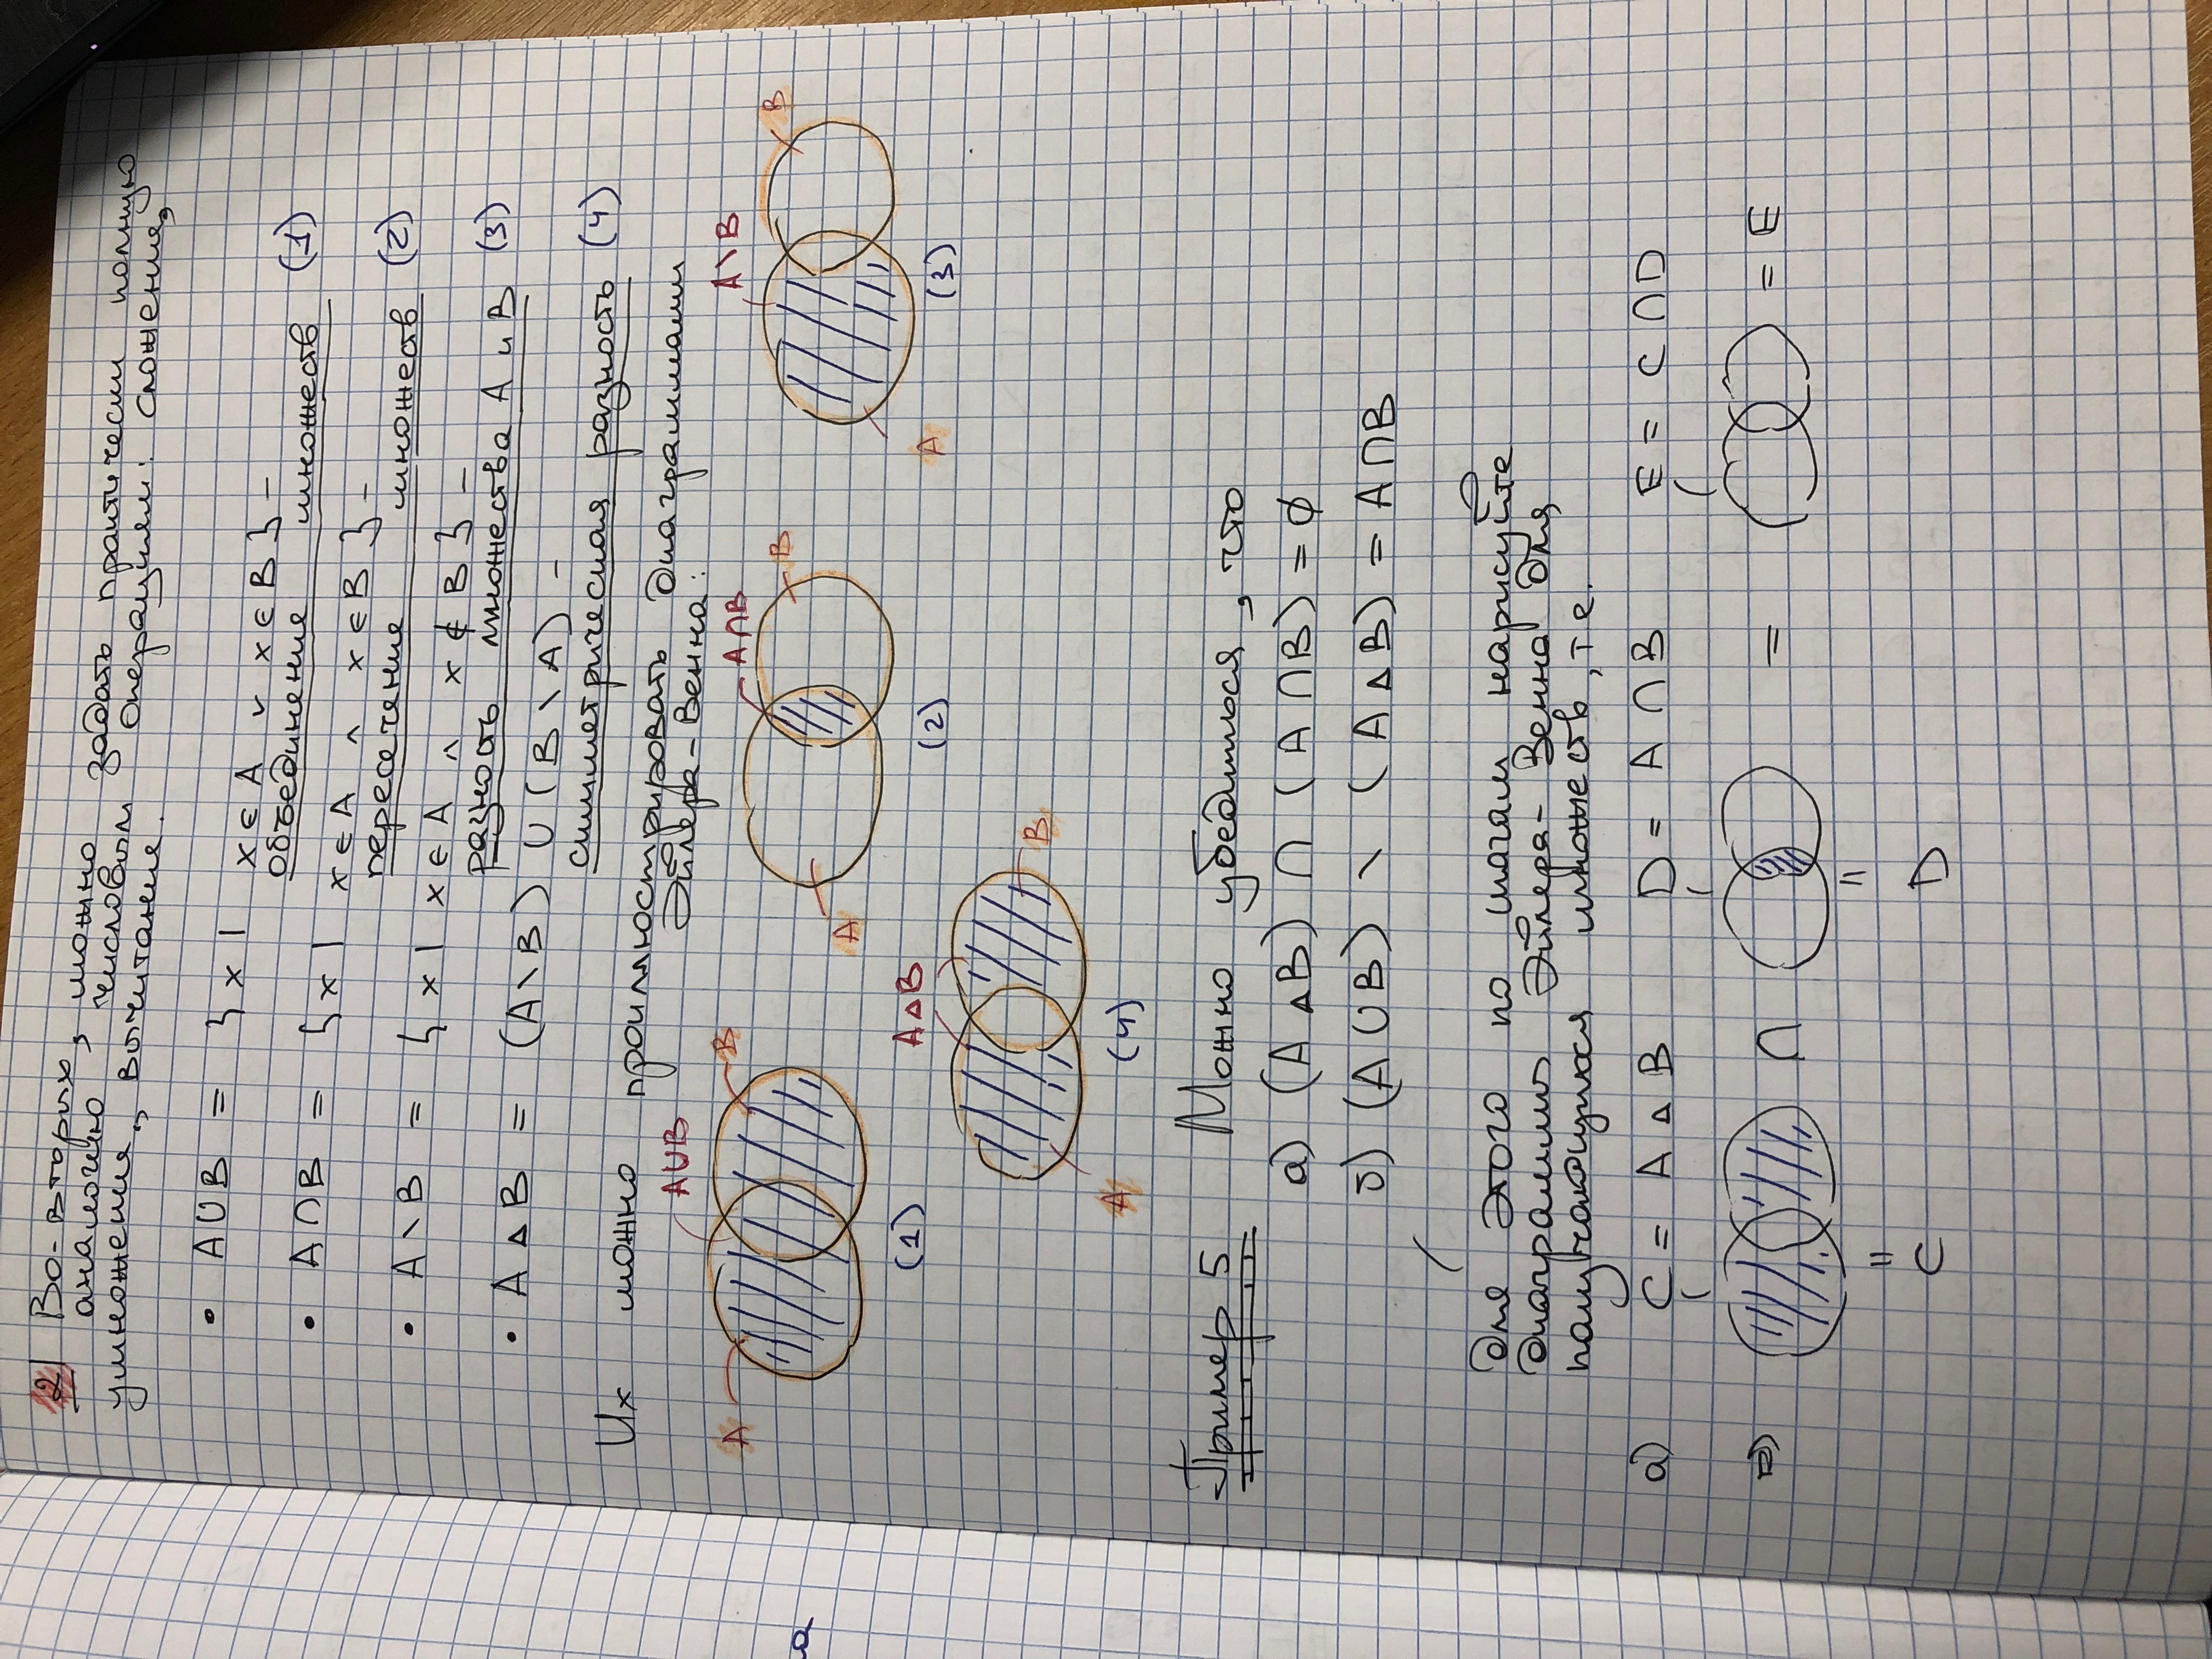 2) Во-вторых, можно задать практически полную
аналогию числовым операциям: сложения,
умножения, вычитание.
• A∪B = {x | x∈A ∨ x∈B} –
объединение множеств (1)
• A∩B = {x | x∈A ∧ x∈B} –
пересечение множеств (2)
• A\B = {x | x∈A ∧ x∉B} –
разность множества A и B (3)
• A△B = (A\B) ∪ (B\A) –
симметрическая разность (4)
Их можно проиллюстрировать диаграммами
Эйлера-Венна:
A A∪B B
(1)
A A∩B B
(2)
A A\B B
(3)
A A△B B
(4)
Пример 5 Можно убедиться, что
а) (A△B) ∩ (A∩B) = ∅
б) (A∪B) \ (A△B) = A∩B
Для этого по шагам нарисуйте
диаграммы Эйлера-Венна для
получающихся множеств, т.е.
а) C = A△B D = A∩B E = C∩D
⇒ ∩ = = E
= =
C D